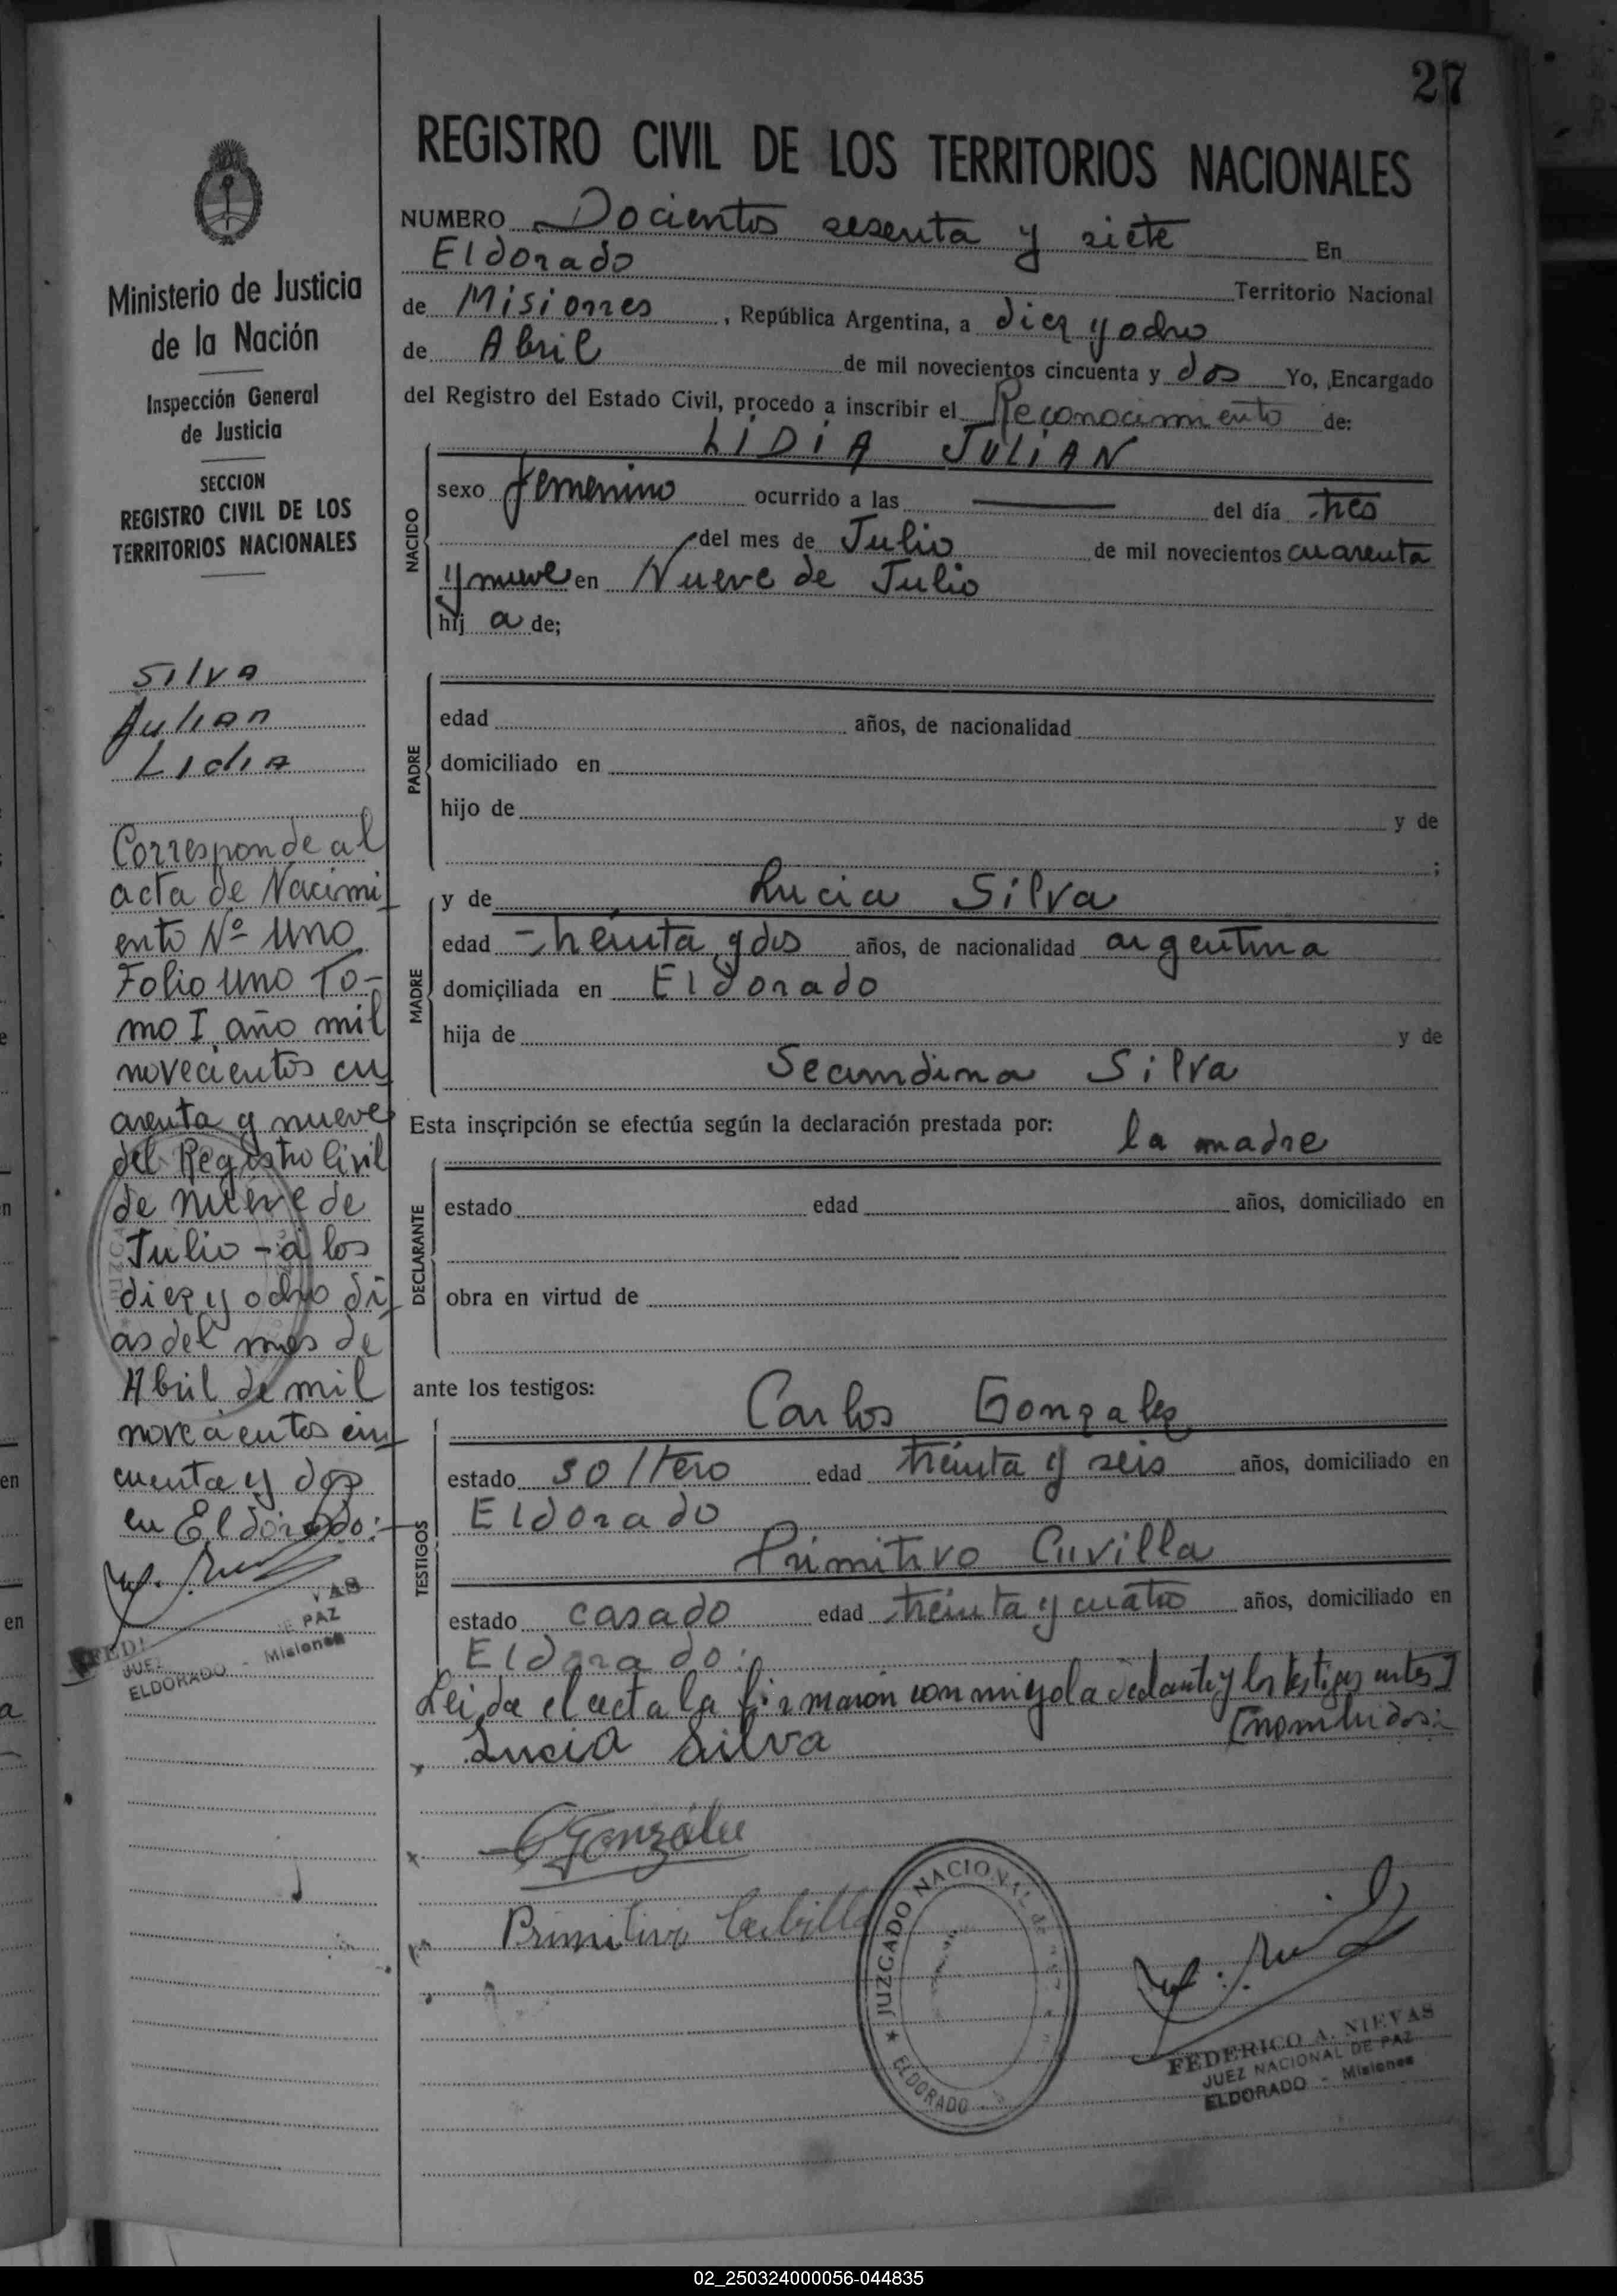 27
REGISTRO CIVIL DE LOS TERRITORIOS NACIONALES
NUMERO Docientos sesenta y siete En
Eldorado Territorio Nacional
de Misiones, República Argentina, a diez y ocho
de Abril de mil novecientos cincuenta y dos Yo, Encargado
del Registro del Estado Civil, procedo a inscribir el Reconocimiento de:
LIDIA JULIAN
NACIDO
sexo femenino ocurrido a las — del día tres
del mes de Julio de mil novecientos cuarenta
y nueve en Nueve de Julio
hij a de;
PADRE
edad años, de nacionalidad
domiciliado en
hijo de y de
;
MADRE
y de Lucia Silva
edad treinta y dos años, de nacionalidad argentina
domiciliada en Eldorado
hija de y de
Secundina Silva
Esta inscripción se efectúa según la declaración prestada por:
la madre
DECLARANTE
estado edad años, domiciliado en
obra en virtud de
ante los testigos:
Carlos Gonzalez
TESTIGOS
estado soltero edad treinta y seis años, domiciliado en
Eldorado
Primitivo Cuvilla
estado casado edad treinta y cuatro años, domiciliado en
Eldorado:
Leida el acta la firmaron conmigo la declante y los testigos antes
nombrados:
Lucia Silva
CGonzález
Primitivo Cubilla
JUZGADO NACIONAL DE PAZ
ELDORADO
FEDERICO A. NIEVAS
JUEZ NACIONAL DE PAZ
ELDORADO - Misiones
Ministerio de Justicia
de la Nación
Inspección General
de Justicia
SECCION
REGISTRO CIVIL DE LOS
TERRITORIOS NACIONALES
Silva
Julian
Lidia
Corresponde al
acta de Nacimi
ento Nº uno
Folio uno To-
mo I año mil
novecientos cu
arenta y nueve
del Registro Civil
de nueve de
Julio - a los
diez y ocho dí
as del mes de
Abril de mil
novecientos cin
cuenta y dos
en Eldorado:
VAS
PAZ
JUEZ
ELDORADO - Misiones
02_250324000056-044835